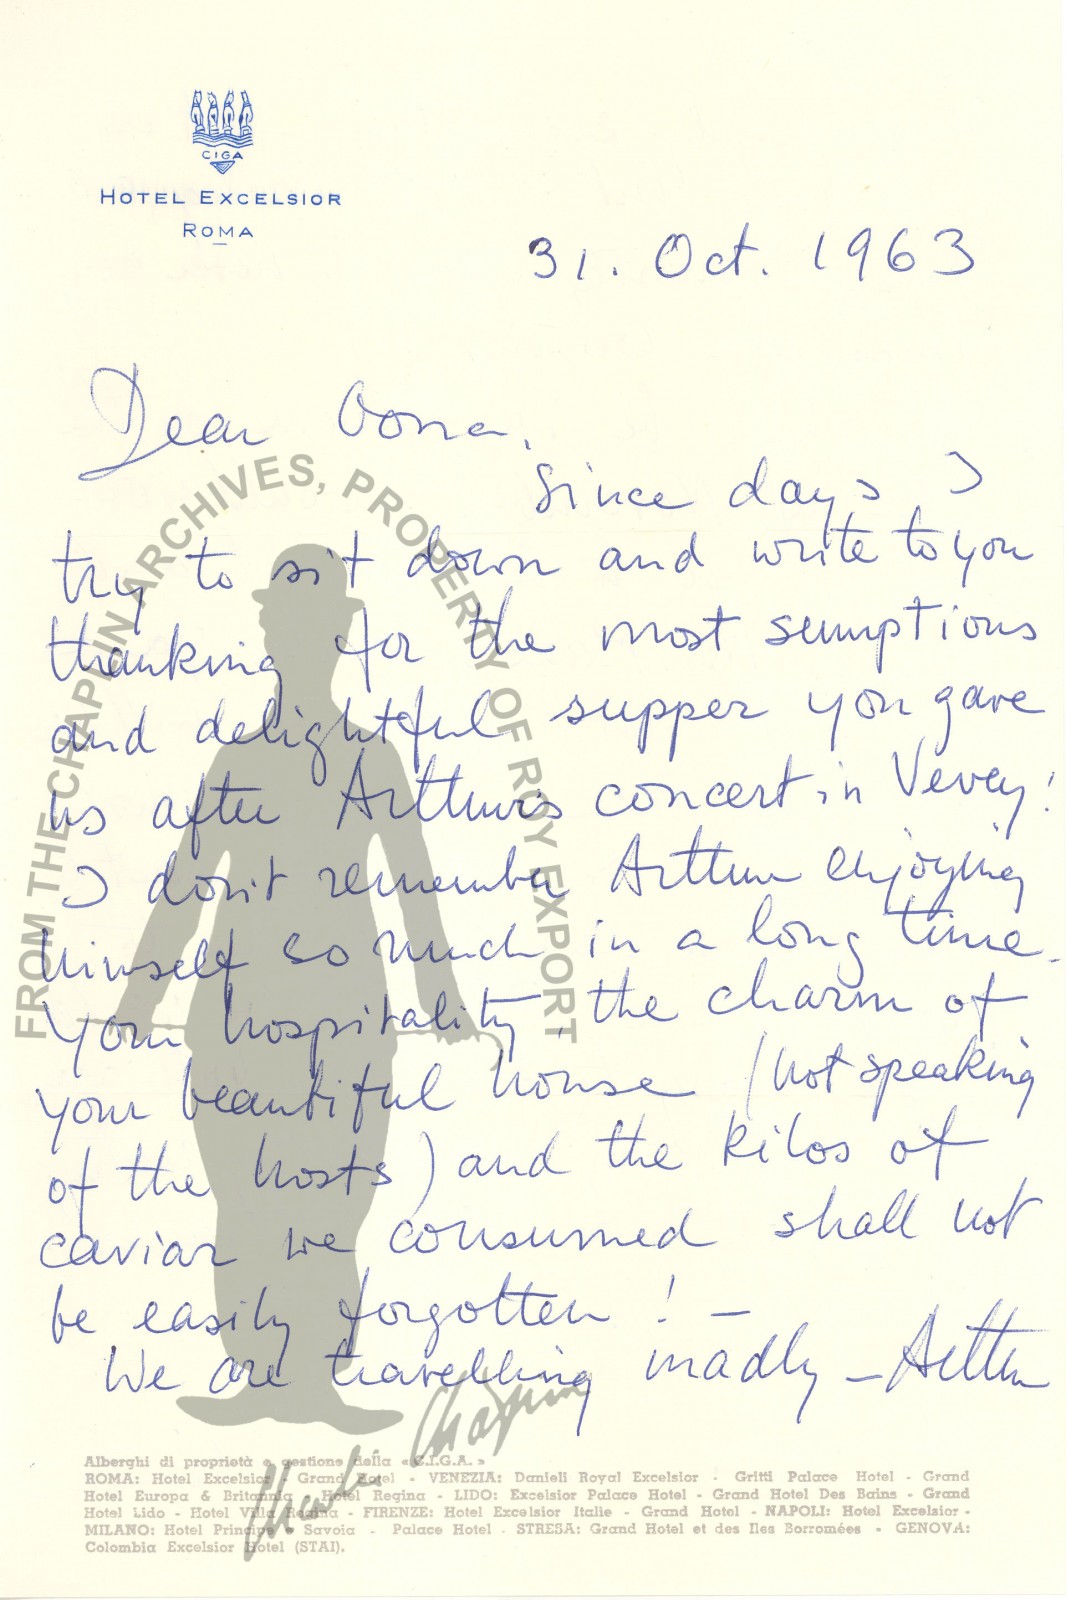 CIGA
HOTEL EXCELSIOR
ROMA
31. Oct. 1963
Dear Oona,
Since days I
try to sit down and write to you
thanking for the most sumptions
and delightful supper you gave
us after Arthur's concert in Vevey!
I don't remember Arthur enjoying
himself so much in a long time.
Your hospitality, the charm of
your beautiful house (not speaking
of the hosts) and the kilos of
caviar we consumed shall not
be easily forgotten! –
We are travelling madly – Arthur
FROM THE CHAPLIN ARCHIVES, PROPERTY OF ROY EXPORT
Charlie Chaplin
Alberghi di proprietà e gestione della « C.I.G.A. »
ROMA: Hotel Excelsior - Grand Hotel - VENEZIA: Danieli Royal Excelsior - Gritti Palace Hotel - Grand
Hotel Europa & Britannia - Hotel Regina - LIDO: Excelsior Palace Hotel - Grand Hotel Des Bains - Grand
Hotel Lido - Hotel Villa Regina - FIRENZE: Hotel Excelsior Italie - Grand Hotel - NAPOLI: Hotel Excelsior -
MILANO: Hotel Principe Savoia - Palace Hotel - STRESA: Grand Hotel et des Iles Borromées - GENOVA:
Colombia Excelsior Hotel (STAI).